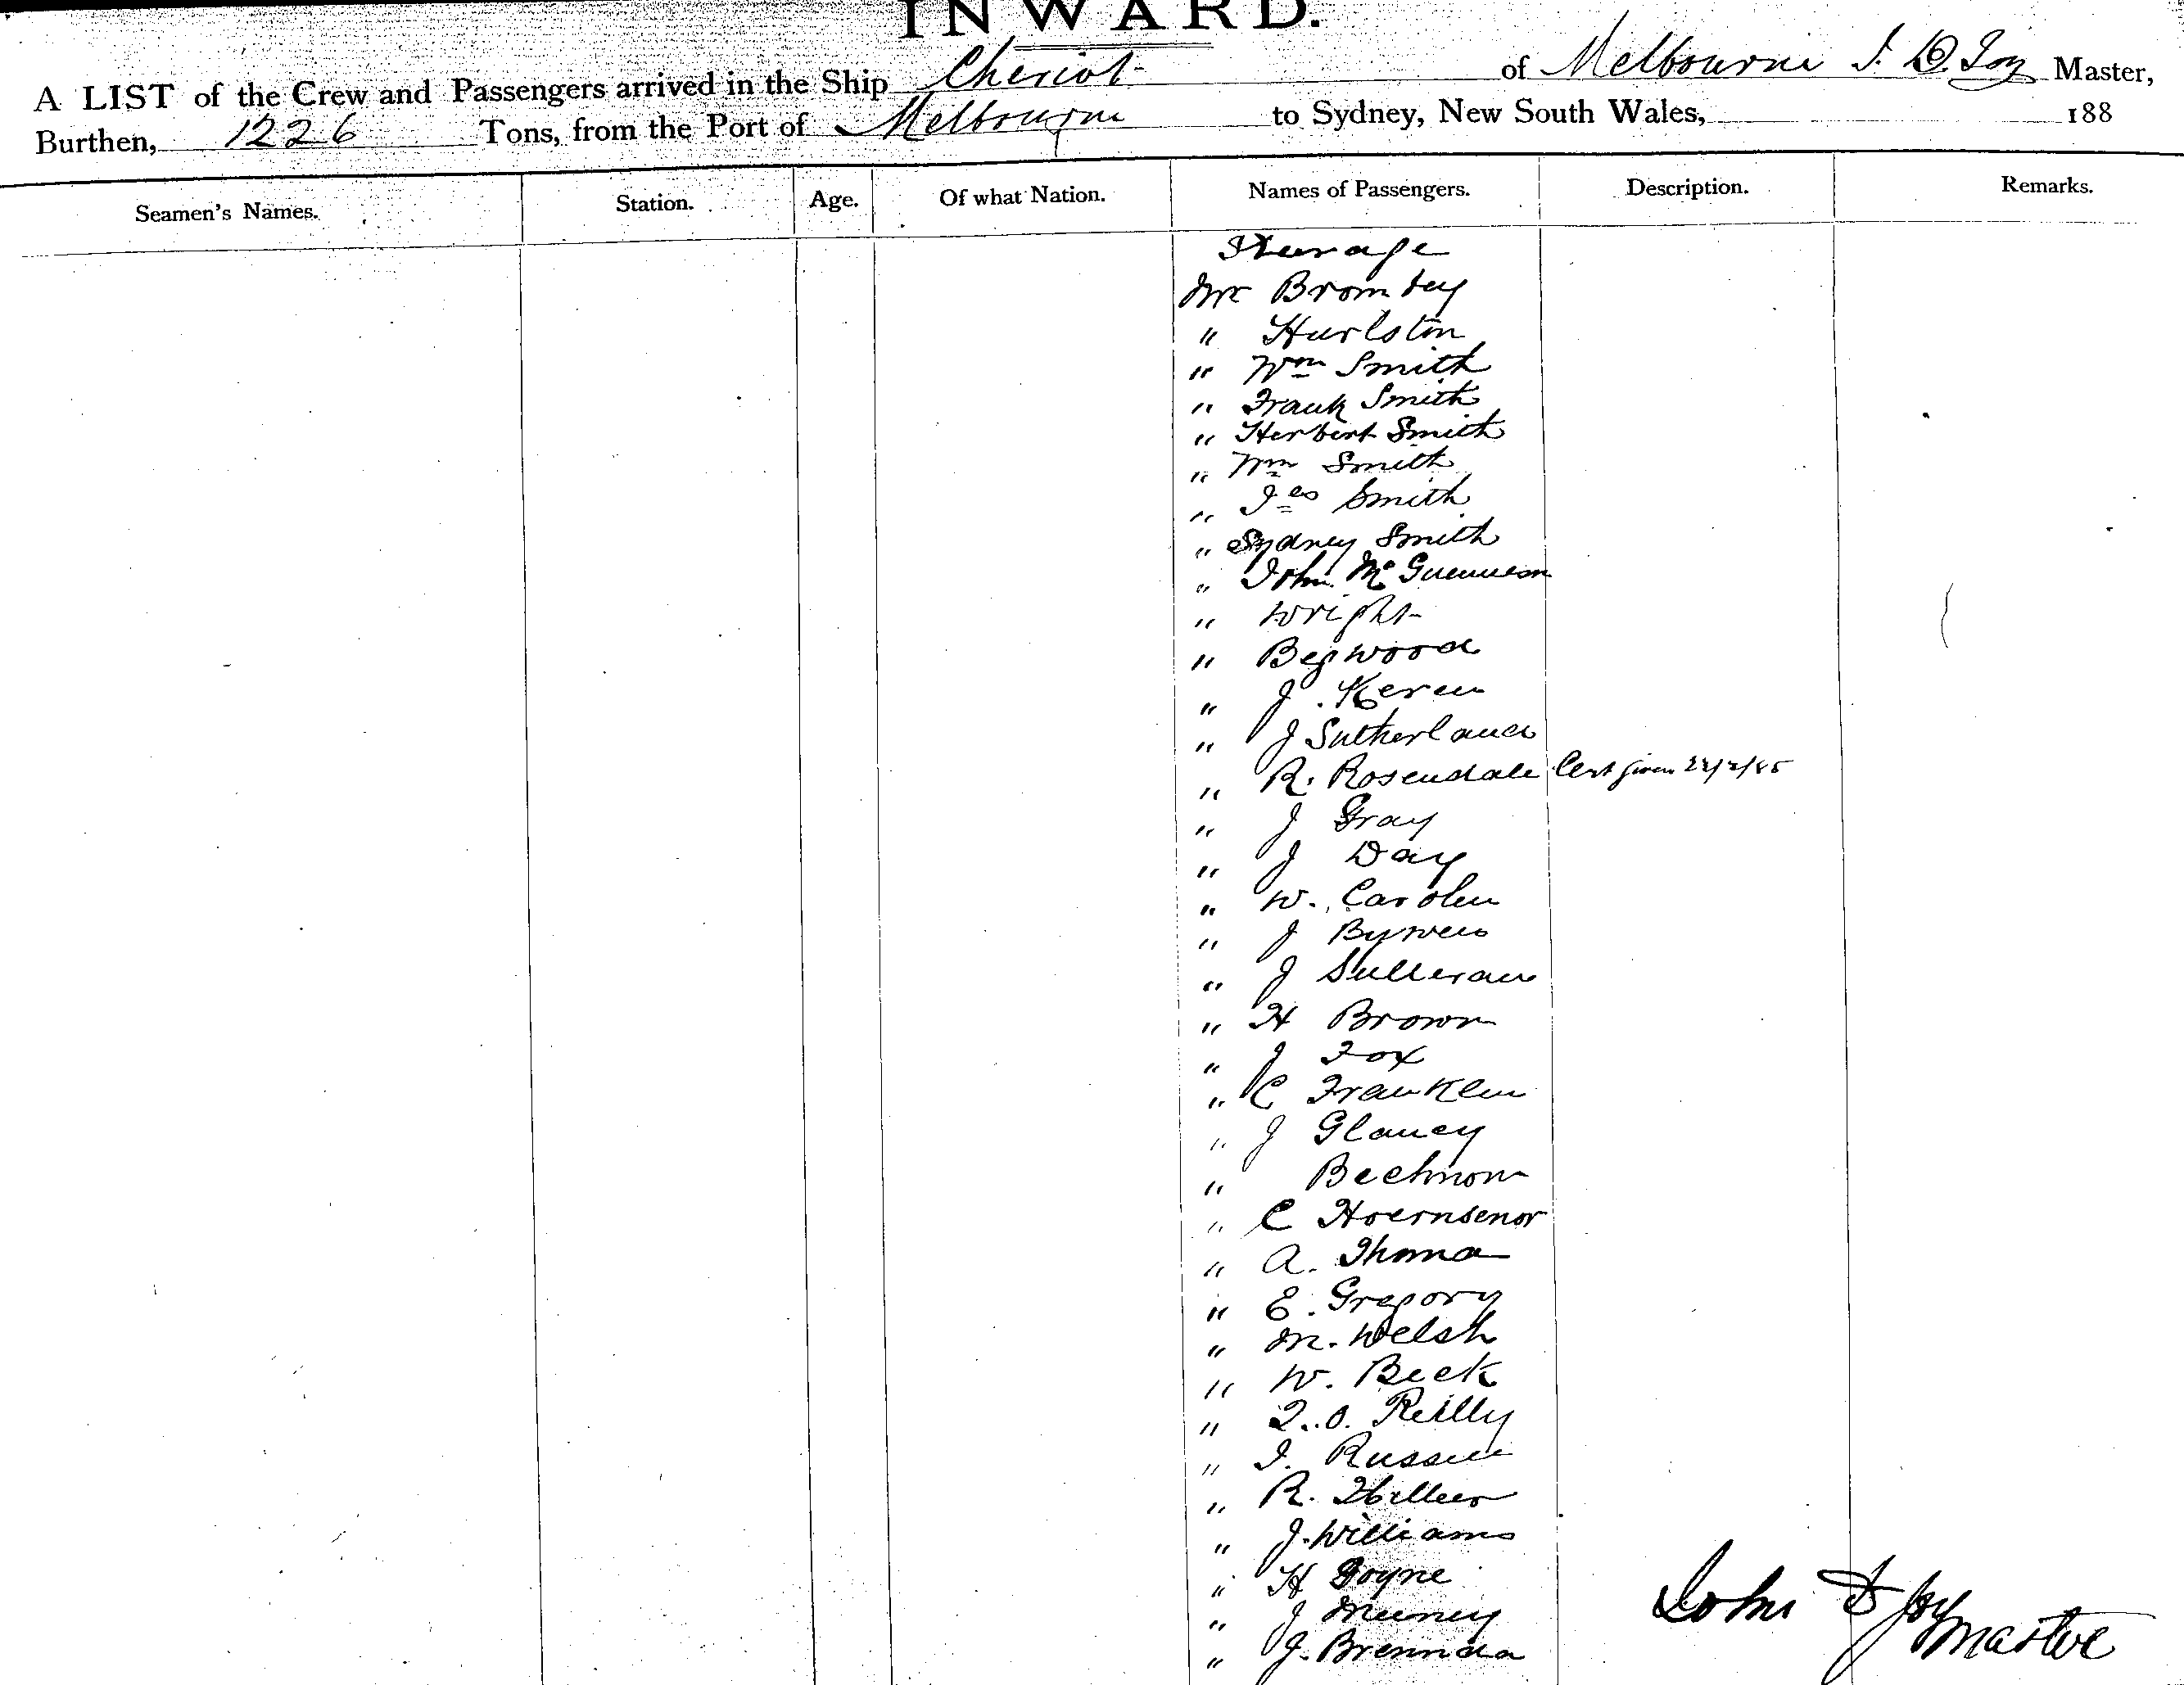 INWARD.
A LIST of the Crew and Passengers arrived in the Ship Cheviot of Melbourne J. D. Joy Master,
Burthen, 1226 Tons, from the Port of Melbourne to Sydney, New South Wales, 188
Seamen's Names. Station. Age. Of what Nation. Names of Passengers. Description. Remarks.
Steerage
Mr Bromley
" Hurlston
" Wm Smith
" Frank Smith
" Herbert Smith
" Wm Smith
" Jas Smith
" Sydney Smith
" John Mc
" Wright
" Begwood
" J. Keren
" J Sutherland
" R. Rosendale Cert given
" J Gray
" J Day
" W. Carolin
" J
" J Sulleran
" H Brown
" J Fox
" C Franklin
" J Glancy
"
" C
" A. Thoma
" E. Gregory
" M. Welsh
" W. Beck
" O. Reilly
" J. Russell
" R.
" J. Williams
" H
" J
" J.
John D Joy
Master